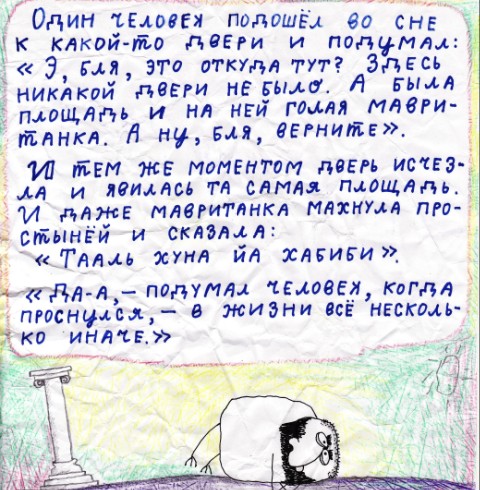 Один человек подошёл во сне
к какой-то двери и подумал:
«Э, бля, это откуда тут? Здесь
никакой двери не было. А была
площадь и на ней голая маври-
танка. А ну, бля, верните».
И тем же моментом дверь исчез-
ла и явилась та самая площадь.
И даже мавританка махнула про-
стынёй и сказала:
«Тааль хуна йа хабиби».
«Да-а, – подумал человек, когда
проснулся, – в жизни всё несколь-
ко иначе.»